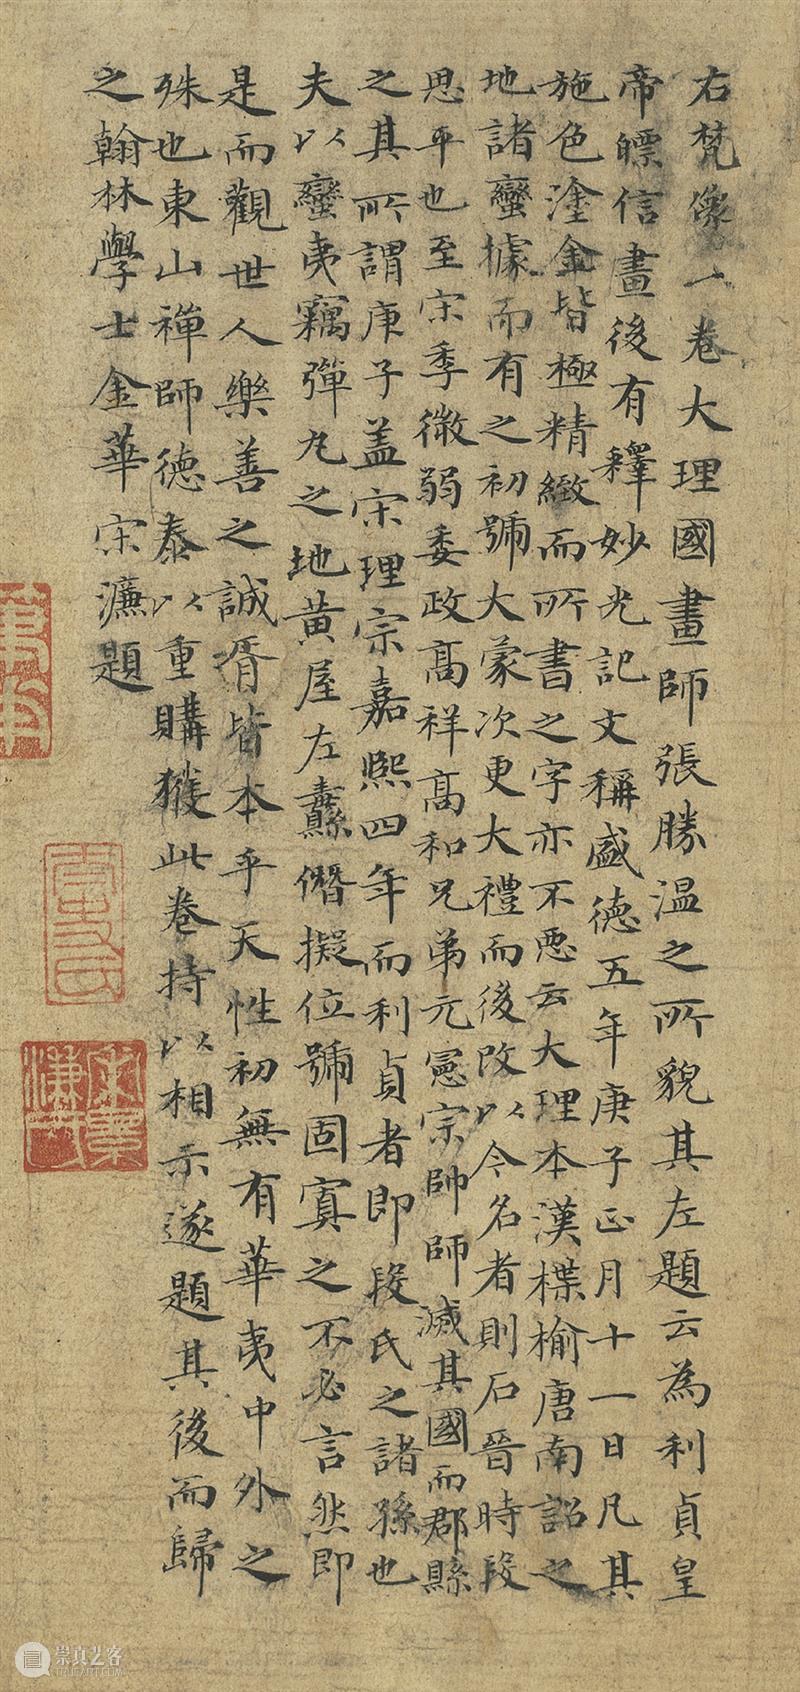 右梵像一卷大理國畫師張勝温之所貌其左題云為利貞皇
帝㟽信畫後有釋妙光記文稱盛德五年庚子正月十一日凡其
施色塗金皆極精緻而所書之字亦不惡云大理本漢楪榆唐南詔之
地諸蠻據而有之初號大蒙次更大禮而後改以今名者則石晉時段
思平也至宋季微弱委政髙祥髙和兄弟元憲宗帥師滅其國而郡縣
之其所謂庚子盖宋理宗嘉熙四年而利貞者即段氏之諸孫也
夫以蠻夷竊彈丸之地黄屋左纛僭擬位號固寘之不必言然即
是而觀世人樂善之誠胥皆本乎天性初無有華夷中外之
殊也東山禅師德泰以重購獲此卷持以相示遂題其後而歸
之翰林學士金華宋濂題
崇真艺客